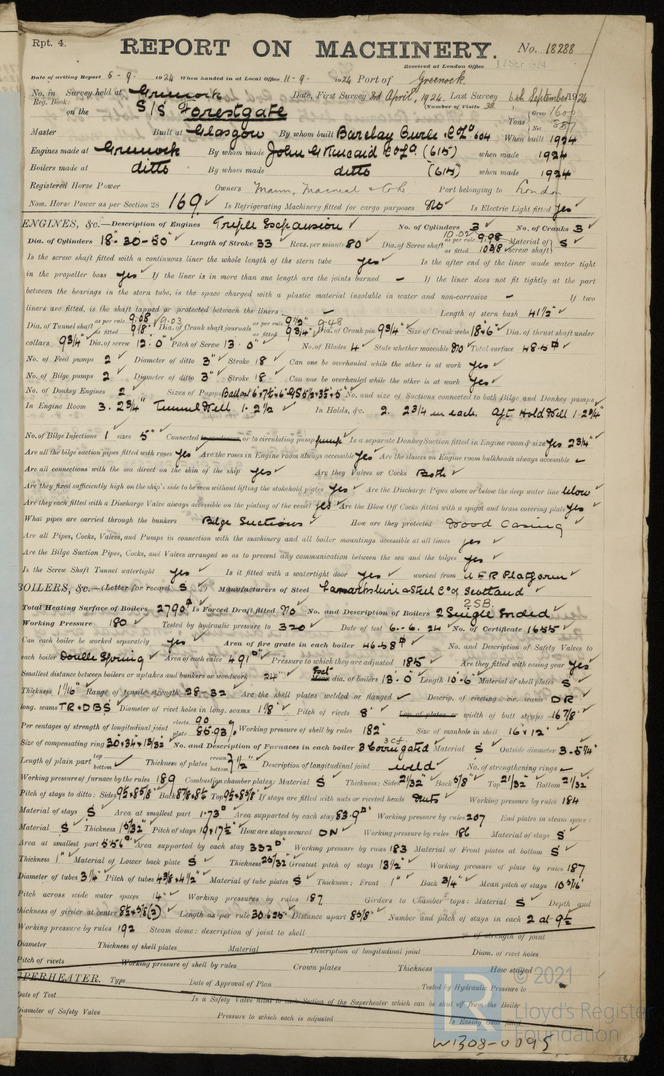 Rpt. 4.
REPORT ON MACHINERY.
No. 18288
Received at London Office
Date of writing Report 5-9- 1924 When handed in at Local Office 11-9- 1924 Port of Greenock
No. in Survey held at Greenock Date, First Survey 3rd April, 1924. Last Survey 6th September 1924
Reg. Book. (Number of Visits 38
on the S/S Forestgate
Tons Gross
Net
Master Built at Glasgow By whom built Barclay Curle & Co Ld 604 When built 1924
Engines made at Greenock By whom made John G Kincaid & Co Ld. (615) when made 1924
Boilers made at ditto By whom made ditto (615) when made 1924
Registered Horse Power Owners Mann, Macneal & Co Port belonging to London
Nom. Horse Power as per Section 28 169 Is Refrigerating Machinery fitted for cargo purposes No Is Electric Light fitted yes
ENGINES, &c.—Description of Engines Triple Expansion No. of Cylinders 3 No. of Cranks 3
Dia. of Cylinders 18-30-50 Length of Stroke 33 Revs. per minute 80 Dia. of Screw shaft as per rule 9.98 as fitted 10 3/8 Material of screw shaft S
Is the screw shaft fitted with a continuous liner the whole length of the stern tube yes Is the after end of the liner made water tight
in the propeller boss yes If the liner is in more than one length are the joints burned — If the liner does not fit tightly at the part
between the bearings in the stern tube, is the space charged with a plastic material insoluble in water and non-corrosive — If two
liners are fitted, is the shaft lapped or protected between the liners — Length of stern bush 41 1/2"
Dia. of Tunnel shaft as per rule 9.08 9.03 as fitted 9 1/8" Dia. of Crank shaft journals as per rule 9 1/2" 9.48 as fitted 9 3/4" Dia. of Crank pin 9 3/4" Size of Crank webs 18×6" Dia. of thrust shaft under
collars 9 3/4" Dia. of screw 12.0" Pitch of Screw 13.0" No. of Blades 4 State whether moveable No Total surface 48.5
No. of Feed pumps 2 Diameter of ditto 3" Stroke 18 Can one be overhauled while the other is at work yes
No. of Bilge pumps 2 Diameter of ditto 3" Stroke 18 Can one be overhauled while the other is at work yes
No. of Donkey Engines 2 Sizes of Pumps No. and size of Suctions connected to both Bilge and Donkey pumps
In Engine Room 3. 2 3/4" Tunnel Well 1-2 1/2 In Holds, &c. 2. 2 3/4 in each. Aft Hold Well 1-2 3/4"
No. of Bilge Injections 1 sizes 5" Connected to circulating pump pump Is a separate Donkey Suction fitted in Engine room & size yes 2 3/4"
Are all the bilge suction pipes fitted with roses yes Are the roses in Engine room always accessible yes Are the sluices on Engine room bulkheads always accessible —
Are all connections with the sea direct on the skin of the ship yes Are they Valves or Cocks Both
Are they fixed sufficiently high on the ship's side to be seen without lifting the stokehold plates yes Are the Discharge Pipes above or below the deep water line below
Are they each fitted with a Discharge Valve always accessible on the plating of the vessel yes Are the Blow Off Cocks fitted with a spigot and brass covering plate yes
What pipes are carried through the bunkers Bilge Suctions How are they protected Wood Casing
Are all Pipes, Cocks, Valves, and Pumps in connection with the machinery and all boiler mountings accessible at all times yes
Are the Bilge Suction Pipes, Cocks, and Valves arranged so as to prevent any communication between the sea and the bilges yes
Is the Screw Shaft Tunnel watertight yes Is it fitted with a watertight door yes worked from U E R Platform
BOILERS, &c.—(Letter for record S) Manufacturers of Steel Lanarkshire & Steel Co of Scotland
2 SB.
Total Heating Surface of Boilers 2790 Is Forced Draft fitted No No. and Description of Boilers 2 Single Ended
Working Pressure 180 Tested by hydraulic pressure to 320 Date of test 6.6.24 No. of Certificate 1655
Can each boiler be worked separately yes Area of fire grate in each boiler 46.58 No. and Description of Safety Valves to
each boiler Double Spring Area of each valve 4.91 Pressure to which they are adjusted 185 Are they fitted with easing gear yes
Smallest distance between boilers or uptakes and bunkers or woodwork 24" dia. of boilers 13'.0" Length 10'.6" Material of shell plates S
Thickness 1 1/16" Range of tensile strength 28-32 Are the shell plates welded or flanged — Descrip. of riveting: cir. seams DR
long. seams TR.DBS Diameter of rivet holes in long. seams 1 1/8" Pitch of rivets 8" width of butt straps 16 7/8"
Per centages of strength of longitudinal joint rivets 90 plate 85.93% Working pressure of shell by rules 182 Size of manhole in shell 16"×12"
Size of compensating ring No. and Description of Furnaces in each boiler 3 Corrugated Material S Outside diameter 3-5 1/4"
Length of plain part Thickness of plates 1/2" Description of longitudinal joint weld No. of strengthening rings —
Working pressure of furnace by the rules 189 Combustion chamber plates: Material S Thickness: Sides 21/32" Back 5/8" Top 21/32" Bottom 21/32"
Pitch of stays to ditto: Sides Back Top If stays are fitted with nuts or riveted heads Nuts Working pressure by rules 184
Material of stays S Area at smallest part 1.73 Area supported by each stay 83.9 Working pressure by rules 207 End plates in steam space:
Material S Thickness Pitch of stays 19×17 1/2 How are stays secured DN Working pressure by rules 186 Material of stays S
Area at smallest part 5.56 Area supported by each stay 332 Working pressure by rules 183 Material of Front plates at bottom S
Thickness 1" Material of Lower back plate S Thickness 25/32 Greatest pitch of stays 13 1/2 Working pressure of plate by rules 187
Diameter of tubes 3 1/4 Pitch of tubes Material of tube plates S Thickness: Front 1" Back 3/4" Mean pitch of stays 10 5/16"
Pitch across wide water spaces 14" Working pressures by rules 187 Girders to Chamber tops: Material S Depth and
thickness of girder at centre Length as per rule 30.625 Distance apart 8 5/8" Number and pitch of stays in each 2 at 9 1/2
Working pressure by rules 192 Steam dome: description of joint to shell % of strength of joint
Diameter Thickness of shell plates Material Description of longitudinal joint Diam. of rivet holes
Pitch of rivets Working pressure of shell by rules Crown plates Thickness How stayed
SUPERHEATER. Type Date of Approval of Plan Tested by Hydraulic Pressure to
Date of Test Is a Safety Valve fitted to each Section of the Superheater which can be shut off from the Boiler
Diameter of Safety Valve Pressure to which each is adjusted Is Easing Gear
© 2021
Lloyd's Register
Foundation
W1308-0095